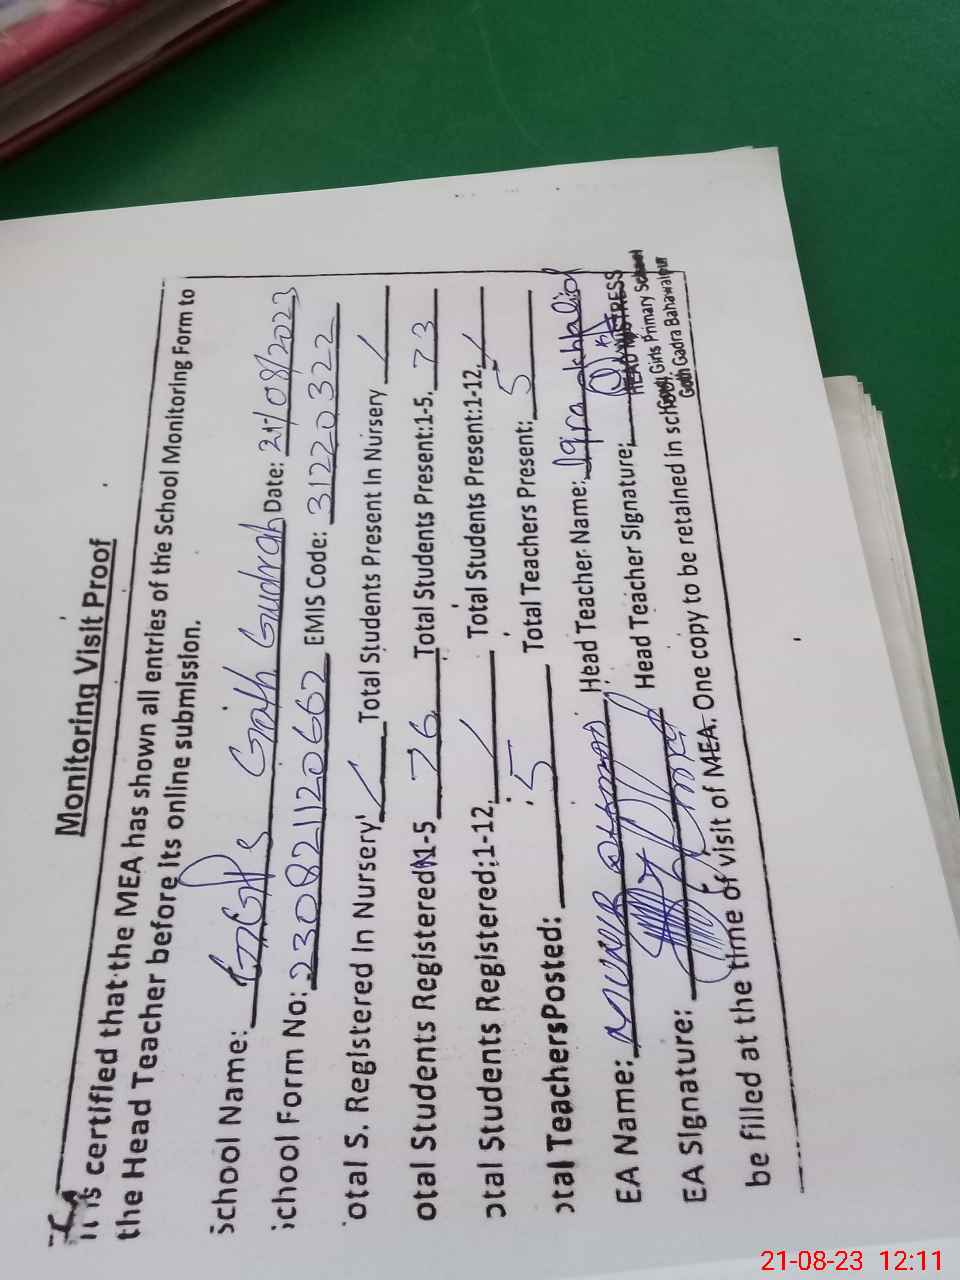 Monitoring Visit Proof
It is certified that the MEA has shown all entries of the School Monitoring Form to
the Head Teacher before its online submission.
School Name: GGPS Goth Gudrah Date: 21/08/2023
School Form No: 230821120662 EMIS Code: 31220322
otal S. Registered In Nursery / Total Students Present In Nursery /
otal Students Registered 1-5 76 Total Students Present:1-5. 73
otal Students Registered:1-12. / Total Students Present:1-12. /
otal TeachersPosted: 5 Total Teachers Present: 5
EA Name: Head Teacher Name: Iqra
EA Signature: Head Teacher Signature:
HEAD MISTRESS
Govt: Girls Primary School
Goth Gadra Bahawalpur
be filled at the time of visit of MEA. One copy to be retained in school.
21-08-23 12:11